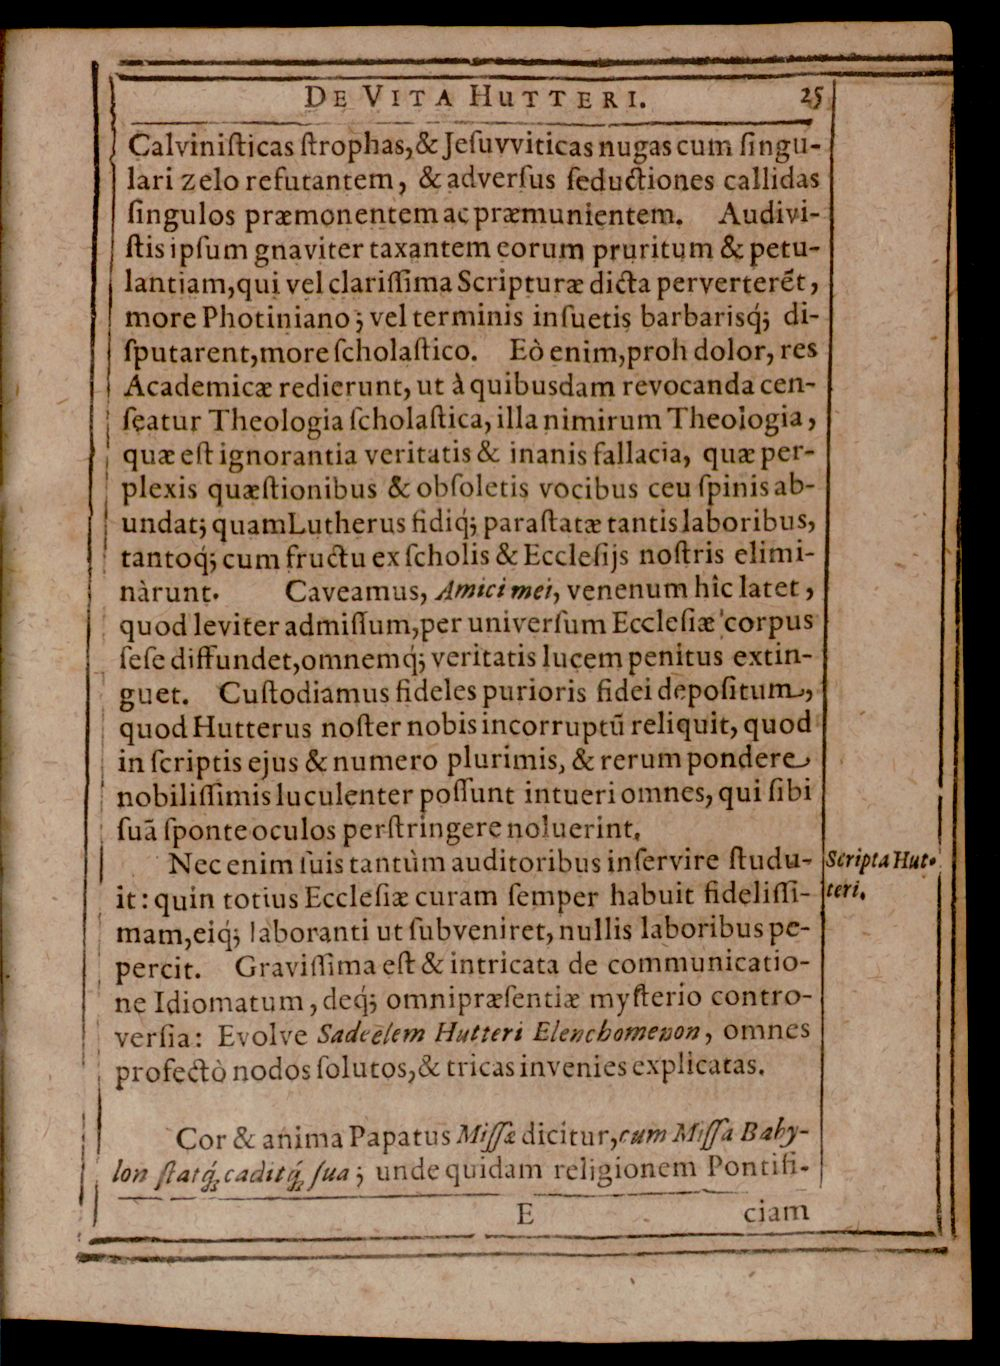 DE VITA HUTTERI. 25
Calviniſticas ſtrophas,& Jeſuvviticas nugas cum ſingu-
lari zelo refutantem, & adverſus ſeductiones callidas
ſingulos præmonentem ac præmunientem. Audivi-
ſtis ipſum gnaviter taxantem eorum pruritum & petu-
lantiam,qui vel clariſſima Scripturæ dicta perverterẽt,
more Photiniano; vel terminis inſuetis barbarisq́; di-
ſputarent,more ſcholaſtico. Eò enim,proh dolor, res
Academicæ redierunt, ut à quibusdam revocanda cen-
ſeatur Theologia ſcholaſtica, illa nimirum Theologia,
quæ eſt ignorantia veritatis & inanis fallacia, quæ per-
plexis quæſtionibus & obſoletis vocibus ceu ſpinis ab-
undat; quamLutherus fidiq́; paraſtatæ tantis laboribus,
tantoq́; cum fructu ex ſcholis & Eccleſijs noſtris elimi-
nàrunt. Caveamus, Amici mei, venenum hîc latet,
quod leviter admiſſum,per univerſum Eccleſiæ corpus
ſeſe diffundet,omnemq́; veritatis lucem penitus extin-
guet. Cuſtodiamus fideles purioris fidei depoſitum,
quod Hutterus noſter nobis incorruptũ reliquit, quod
in ſcriptis ejus & numero plurimis, & rerum pondere
nobiliſſimis luculenter poſſunt intueri omnes, qui ſibi
ſuã ſponte oculos perſtringere noluerint.
Nec enim ſuis tantùm auditoribus inſervire ſtudu-
Scripta Hut-
it: quin totius Eccleſiæ curam ſemper habuit fideliſſi-
teri.
mam,eiq́; laboranti ut ſubveniret, nullis laboribus pe-
percit. Graviſſima eſt & intricata de communicatio-
ne Idiomatum, deq́; omnipræſentiæ myſterio contro-
verſia: Evolve Sadeelem Hutteri Elenchomenon, omnes
profectò nodos ſolutos,& tricas invenies explicatas.
Cor & anima Papatus Miſſæ dicitur,cum Miſſa Baby-
lon ſtatq́; caditq́; ſua; unde quidam religionem Pontifi-
E ciam